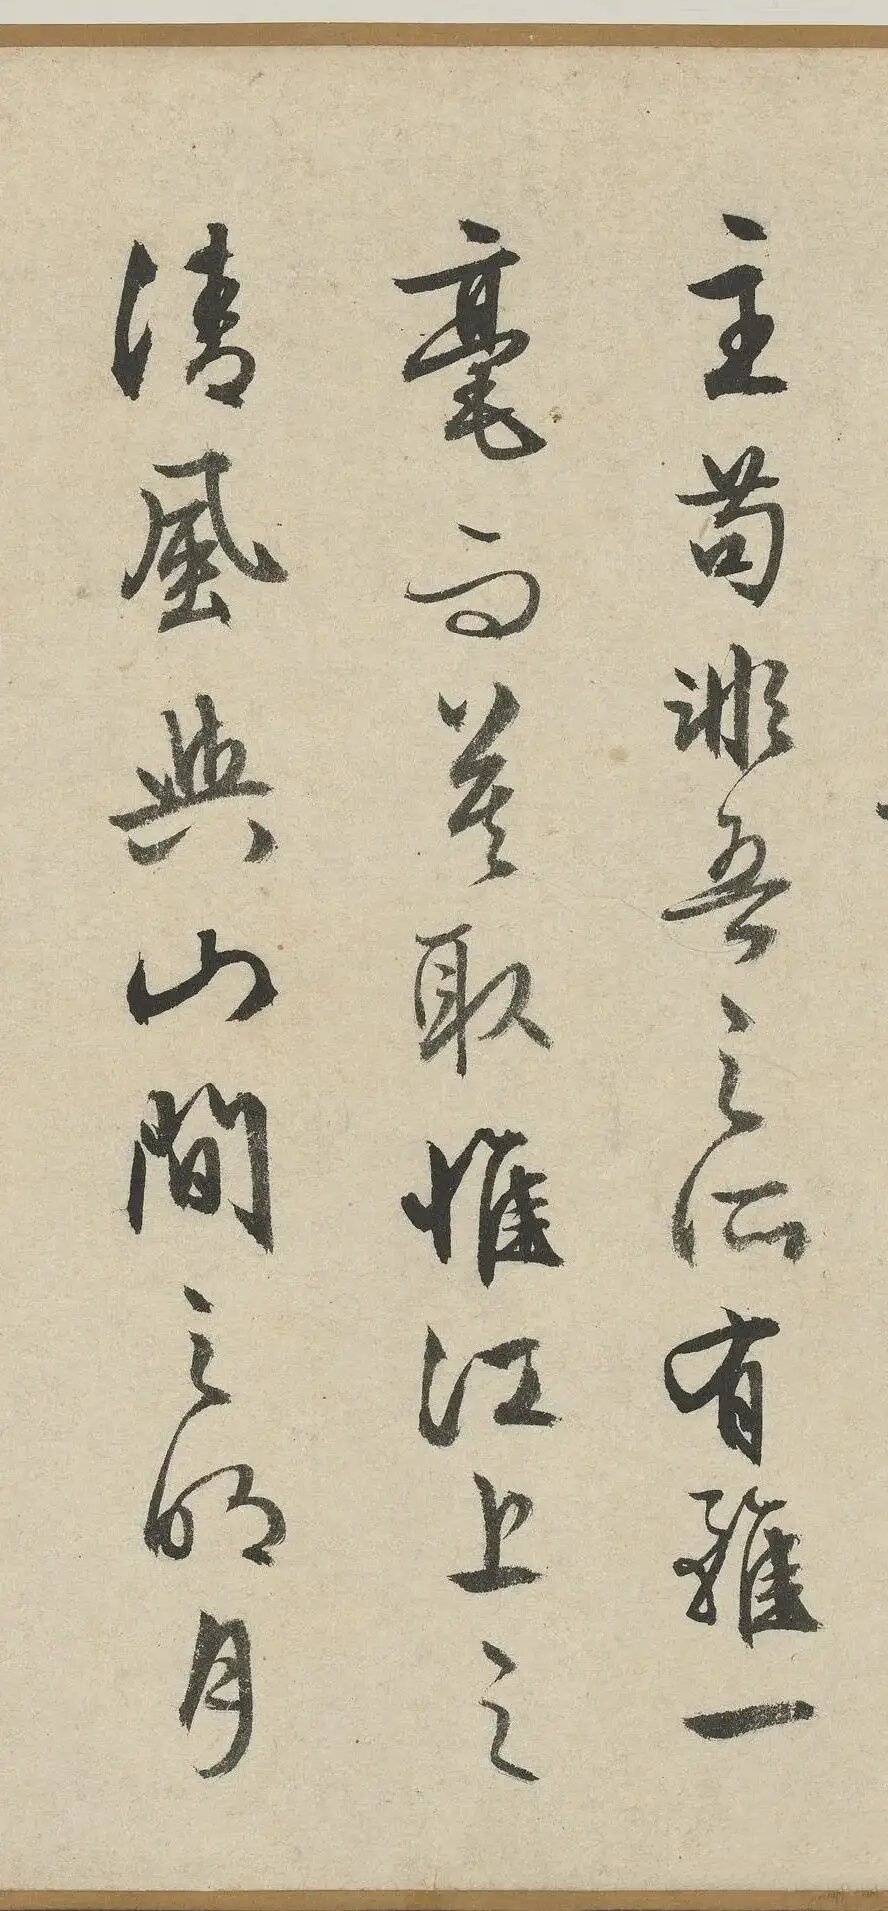 主苟非吾之所有雖一
毫而莫取惟江上之
清風與山間之明月